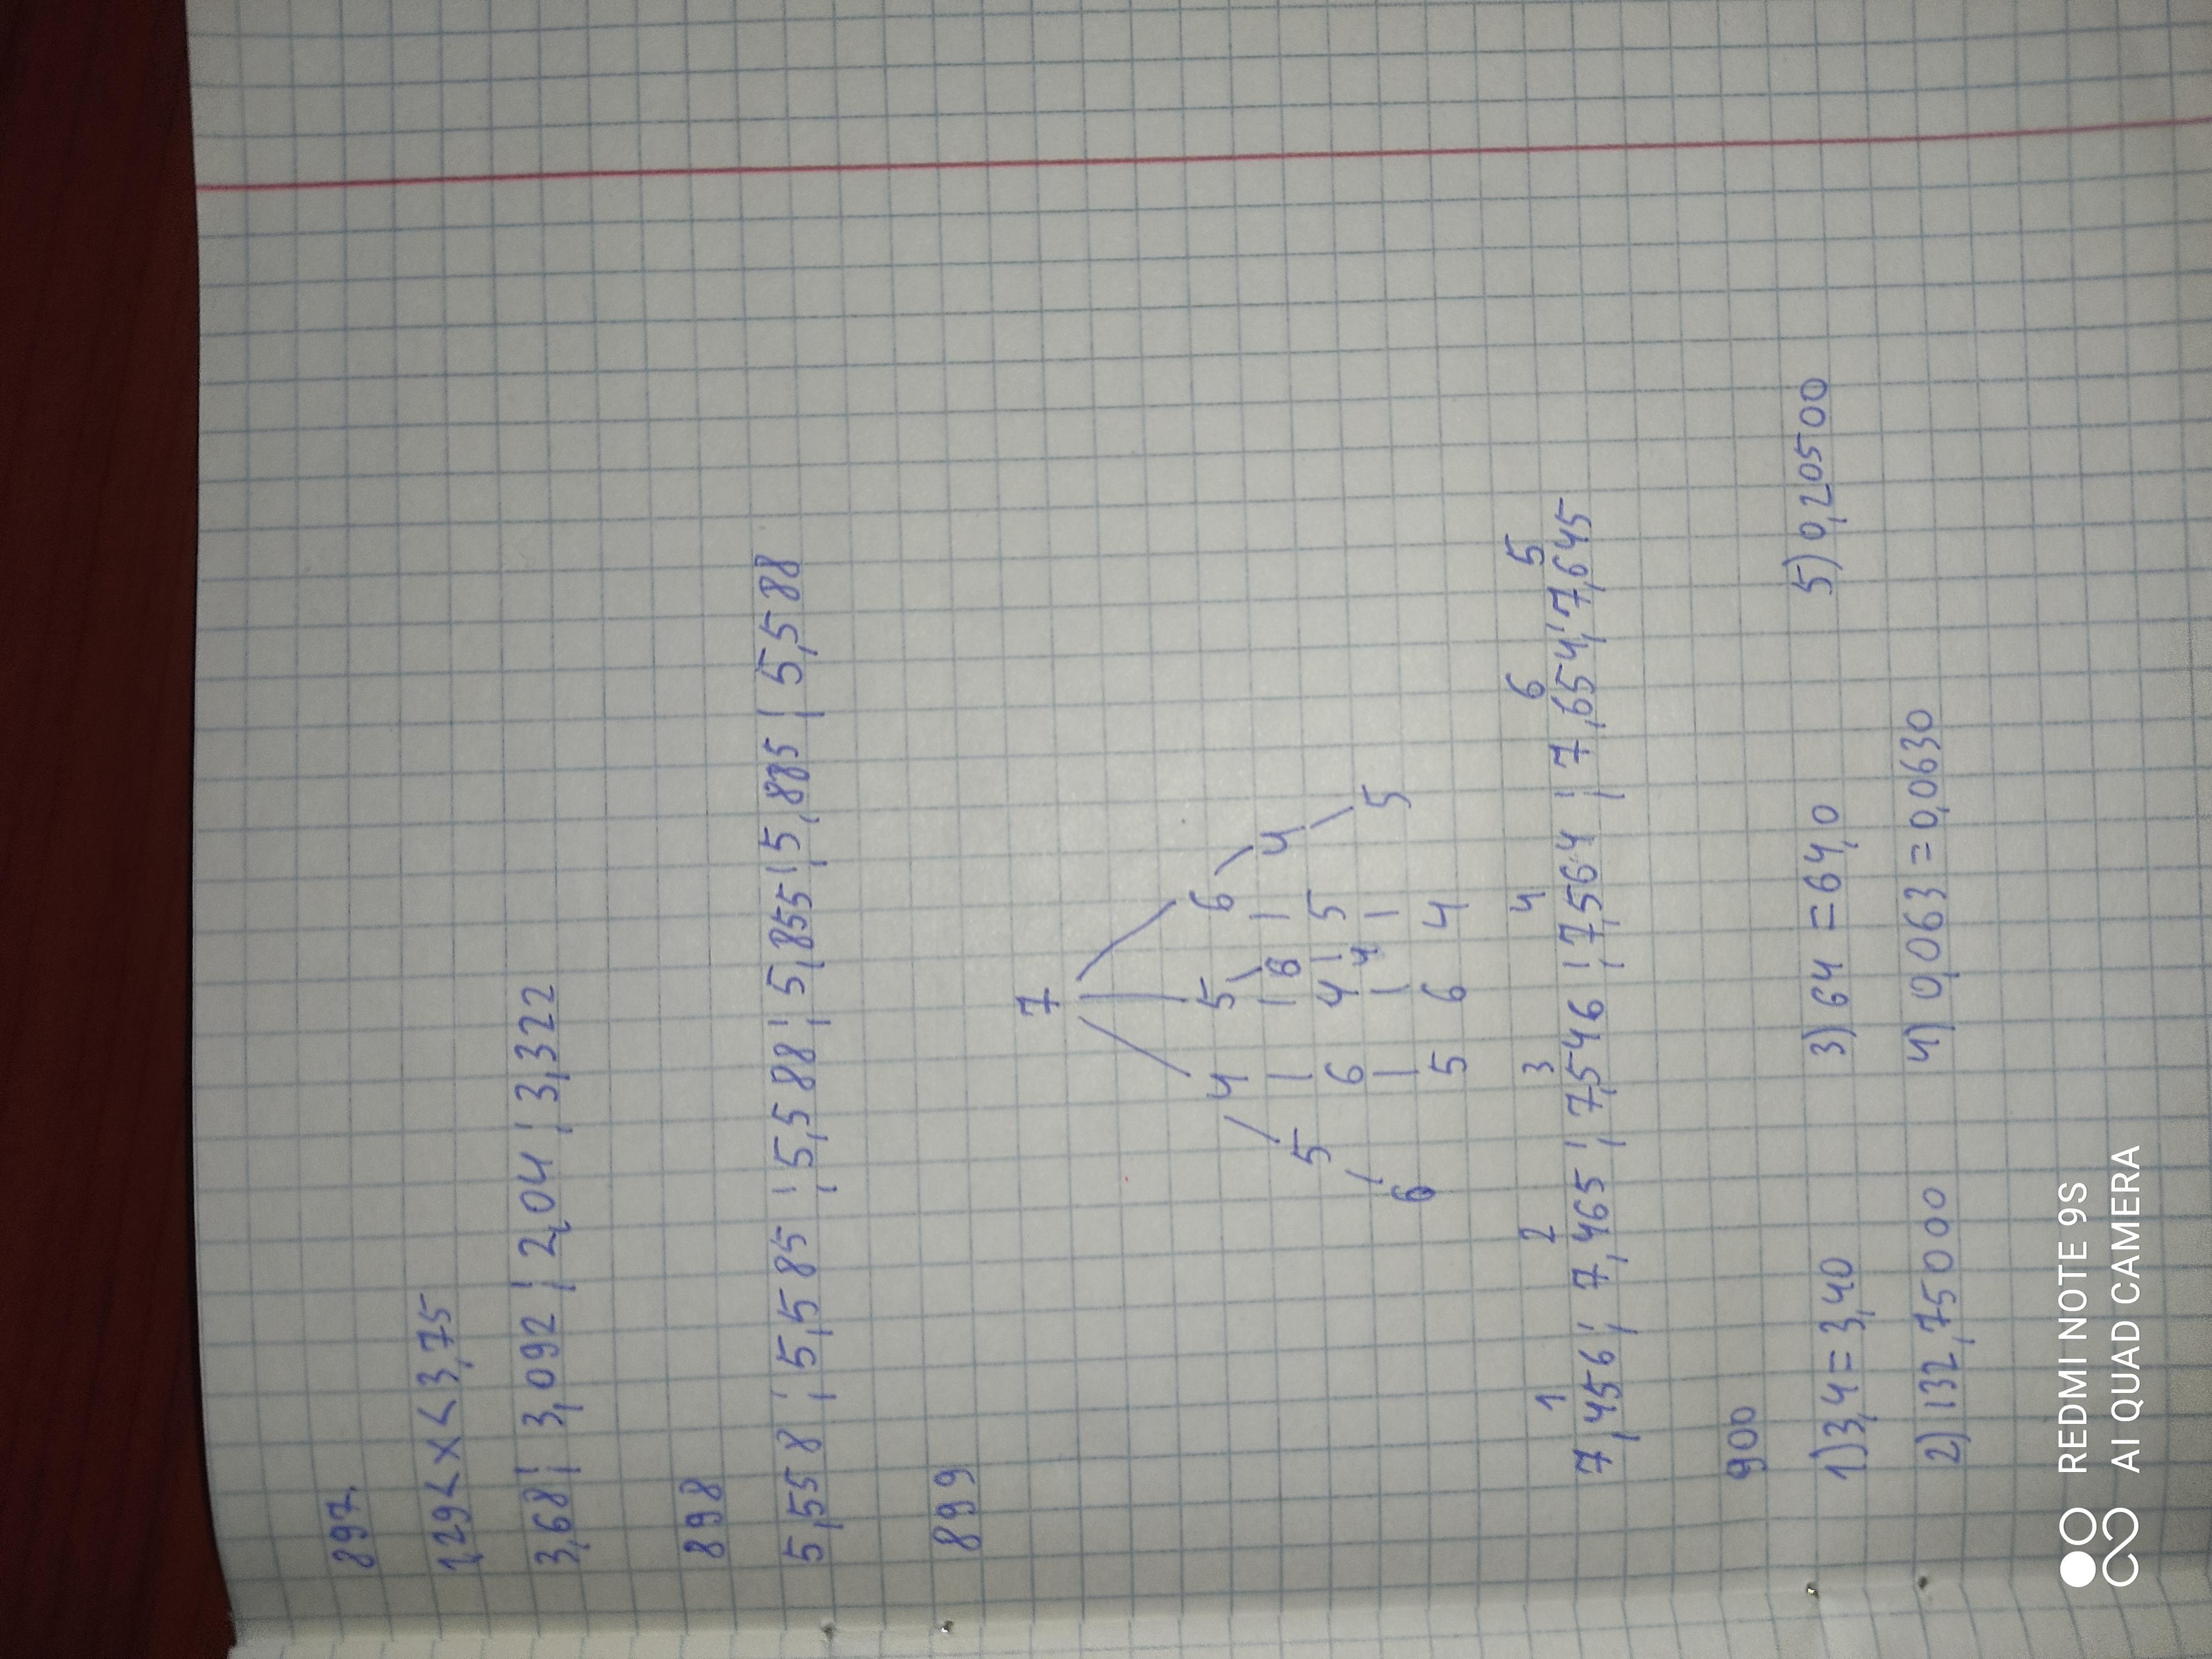 897.
1,29 < x < 3,75
3,68; 3,092; 2,04; 3,322
898
5,558; 5,585; 5,588; 5,855; 5,885; 5,588
899
7
4 5 6
5 6 6 4 5 4
6 5 6 4 5 4
1 2 3 4 6 5
7,456; 7,465; 7,546; 7,564; 7,654; 7,645
900
1) 3,4 = 3,40 3) 64 = 64,0 5) 0,20500
2) 132,75000 4) 0,063 = 0,0630
REDMI NOTE 9S
AI QUAD CAMERA